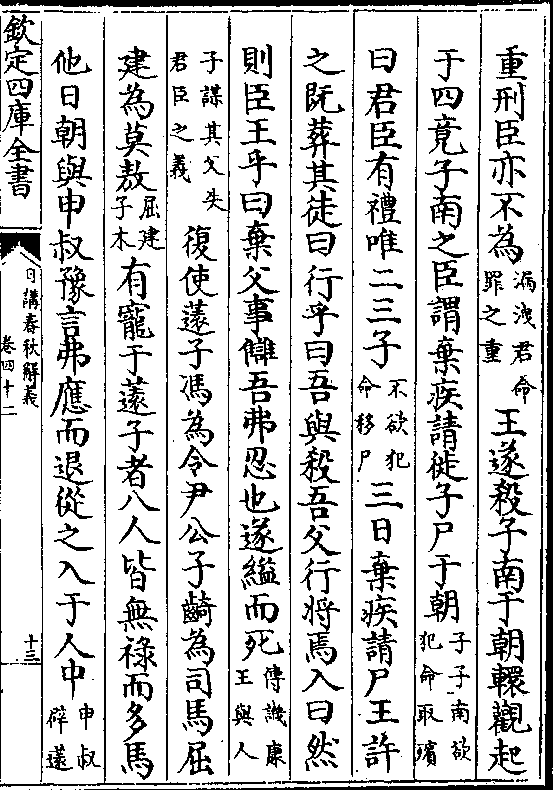 重刑臣亦不為漏洩君命罪之重王遂殺子南于朝轘觀起
于四竟子南之臣謂棄疾請徙子尸于朝子子南欲犯命取殯
曰君臣有禮唯二三子不欲犯命移尸三日棄疾請尸王許
之既葬其徒曰行乎曰吾與殺吾父行將焉入曰然
則臣王乎曰棄父事讎吾弗忍也遂縊而死傳譏康王與人
子謀其父失君臣之義復使薳子馮為令尹公子齮為司馬屈
建為莫敖屈建子木有寵于薳子者八人皆無祿而多馬
他日朝與申叔豫言弗應而退從之入于人中申叔辟薳
欽定四庫全書
日講春秋解義
卷四十二
十三